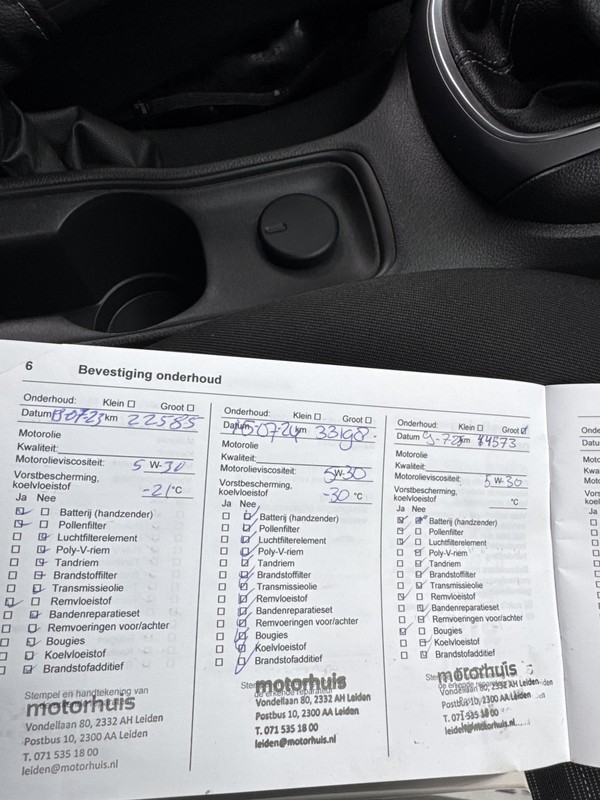 6 Bevestiging onderhoud
Onderhoud: Klein ☐ Groot ☐
Datum km 22585
Motorolie
Kwaliteit:
Motorolieviscositeit: 5 W-30
Vorstbescherming,
koelvloeistof -21 °C
Ja Nee
Batterij (handzender)
Pollenfilter
Luchtfilterelement
Poly-V-riem
Tandriem
Brandstoffilter
Transmissieolie
Remvloeistof
Bandenreparatieset
Remvoeringen voor/achter
Bougies
Koelvloeistof
Brandstofadditief
Stempel en handtekening van
motorhuis
Vondellaan 80, 2332 AH Leiden
Postbus 10, 2300 AA Leiden
T. 071 535 18 00
leiden@motorhuis.nl
Onderhoud: Klein ☐ Groot ☐
Datum km 33198
Motorolie
Kwaliteit:
Motorolieviscositeit: 5W-30
Vorstbescherming,
koelvloeistof -30 °C
Ja Nee
Batterij (handzender)
Pollenfilter
Luchtfilterelement
Poly-V-riem
Tandriem
Brandstoffilter
Transmissieolie
Remvloeistof
Bandenreparatieset
Remvoeringen voor/achter
Bougies
Koelvloeistof
Brandstofadditief
motorhuis
de erkende reparateur
Vondellaan 80, 2332 AH Leiden
Postbus 10, 2300 AA Leiden
T. 071 535 18 00
leiden@motorhuis.nl
Onderhoud: Klein ☐ Groot ☑
Datum km 44573
Motorolie
Kwaliteit:
Motorolieviscositeit: 5 W-30
Vorstbescherming,
koelvloeistof °C
Ja Nee
Batterij (handzender)
Pollenfilter
Luchtfilterelement
Poly-V-riem
Tandriem
Brandstoffilter
Transmissieolie
Remvloeistof
Bandenreparatieset
Remvoeringen voor/achter
Bougies
Koelvloeistof
Brandstofadditief
motorhuis
Vondellaan 80, 2332 AH Leiden
Postbus 10, 2300 AA Leiden
T. 071 535 18 00
leiden@motorhuis.nl